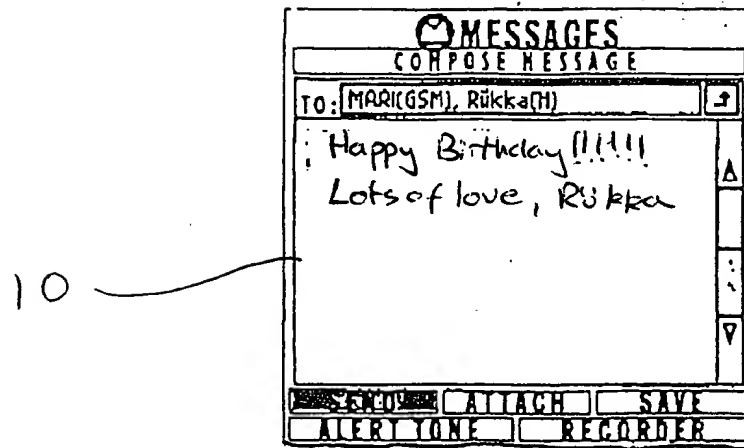 MESSAGES
COMPOSE MESSAGE
TO: MARI(GSM), Rükka(H)
Happy Birthday!!!!!!
Lots of love, Rükka
10
SEND ATTACH SAVE
ALERT TONE RECORDER